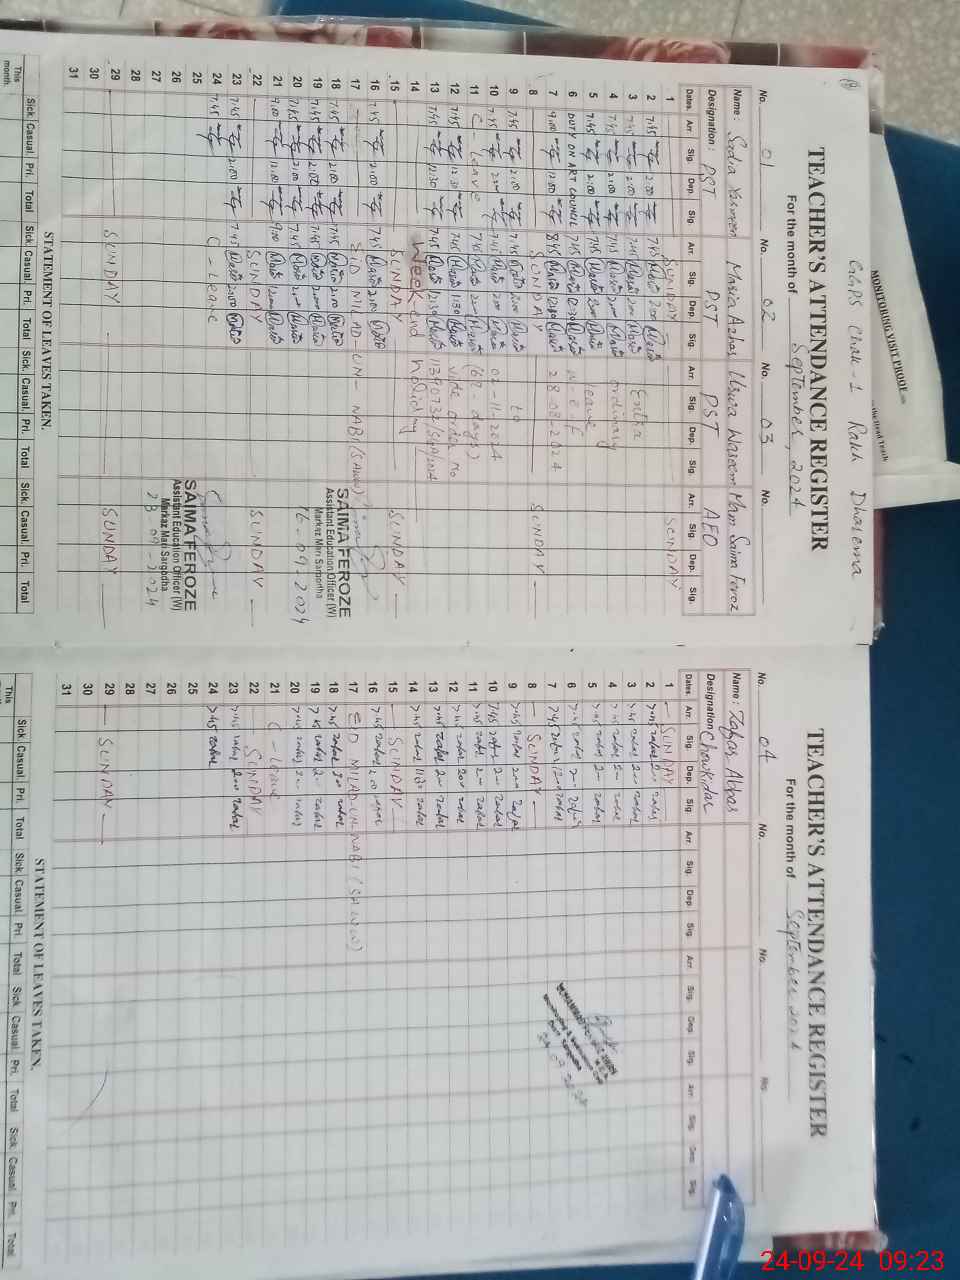 MONITORING VISIT PROOF
GGPS Chak-1 Rakh Dharema
TEACHER'S ATTENDANCE REGISTER
For the month of September, 2024
No. 01 No. 02 No. 03 No.
Name: Sadia Yasmeen Maria Azhar Uswa Waseem Mam Saima Feroz
Designation: PST PST PST AEO
Dates. Arr. Sig. Dep. Sig. Arr. Sig. Dep. Sig. Arr. Sig. Dep. Sig. Arr. Sig. Dep. Sig.
1 SUNDAY SUNDAY
2 7.45 2.00 7.45 2.00
3 7.45 2.00 7.45 2.00 Extra
4 7.45 2.00 7.45 2.00 ordinary
5 7.45 2.00 7.45 2.00 leave
6 DUTY ON ART COUNCIL 7.45 12.30 w.e.f
7 9.00 12.30 8.45 12.30 28-08-2024
8 SUNDAY SUNDAY
9 7.45 2.00 7.45 2.00 to
10 7.45 2.00 7.45 2.00 02-11-2024
11 C Leave 7.45 2.00 (67-days)
12 7.45 12.30 7.45 vide order no
13 7.45 12.30 7.45 12.30
14 Weekend Holiday
15 SUNDAY SUNDAY
16 7.45 2.00 7.45 2.00
17 EID MILAD-UN-NABI (SAWW)
18 7.45 2.00 7.45 2.00
19 7.45 2.00 7.45 2.00
20 7.45 2.00 7.45 2.00
21 9.00 12.00 9.00 12.00
22 SUNDAY SUNDAY
23 7.45 2.00 7.45 2.00
24 7.45 C-Leave
25
26
27
28
29 SUNDAY SUNDAY
30
31
SAIMA FEROZE
Assistant Education Officer (W)
Markaz Mari Sargodha
16-09-2024
SAIMA FEROZE
Assistant Education Officer (W)
Markaz Mari Sargodha
23-09-2024
STATEMENT OF LEAVES TAKEN.
This month. Sick. Casual. Pri. Total Sick. Casual. Pri. Total Sick. Casual. Pri. Total Sick. Casual. Pri. Total
TEACHER'S ATTENDANCE REGISTER
For the month of September 2024
No. 04 No. No. No.
Name: Zafar Abbas
Designation Chowkidar
Dates. Arr. Sig. Dep. Sig. Arr. Sig. Dep. Sig. Arr. Sig. Dep. Sig. Arr. Sig. Dep. Sig.
1 SUNDAY
2 7.45 zafar 2.00 zafar
3 7.45 zafar 2.00 zafar
4 7.45 zafar 2.00 zafar
5 7.45 zafar 2.00 zafar
6 7.45 zafar zafar
7 7.45 zafar zafar
8 SUNDAY
9 7.45 zafar 2.00 zafar
10 7.45 zafar 2.00 zafar
11 7.45 zafar 2.00 zafar
12 7.45 zafar 2.00 zafar
13 7.45 zafar 2.00 zafar
14 7.45 zafar 11.30 zafar
15 SUNDAY
16 7.45 zafar 2.00 zafar
17 EID MILAD-UN-NABI (SAWW)
18 7.45 zafar 2.00 zafar
19 7.45 zafar 2.00 zafar
20 7.45 zafar 2.00 zafar
21 C-Leave
22 SUNDAY
23 7.45 zafar 2.00 zafar
24 7.45 zafar
25
26
27
28
29 SUNDAY
30
31
STATEMENT OF LEAVES TAKEN.
This month Sick. Casual. Pri. Total Sick. Casual. Pri. Total Sick. Casual. Pri. Total Sick. Casual. Pri. Total
24-09-24 09:23